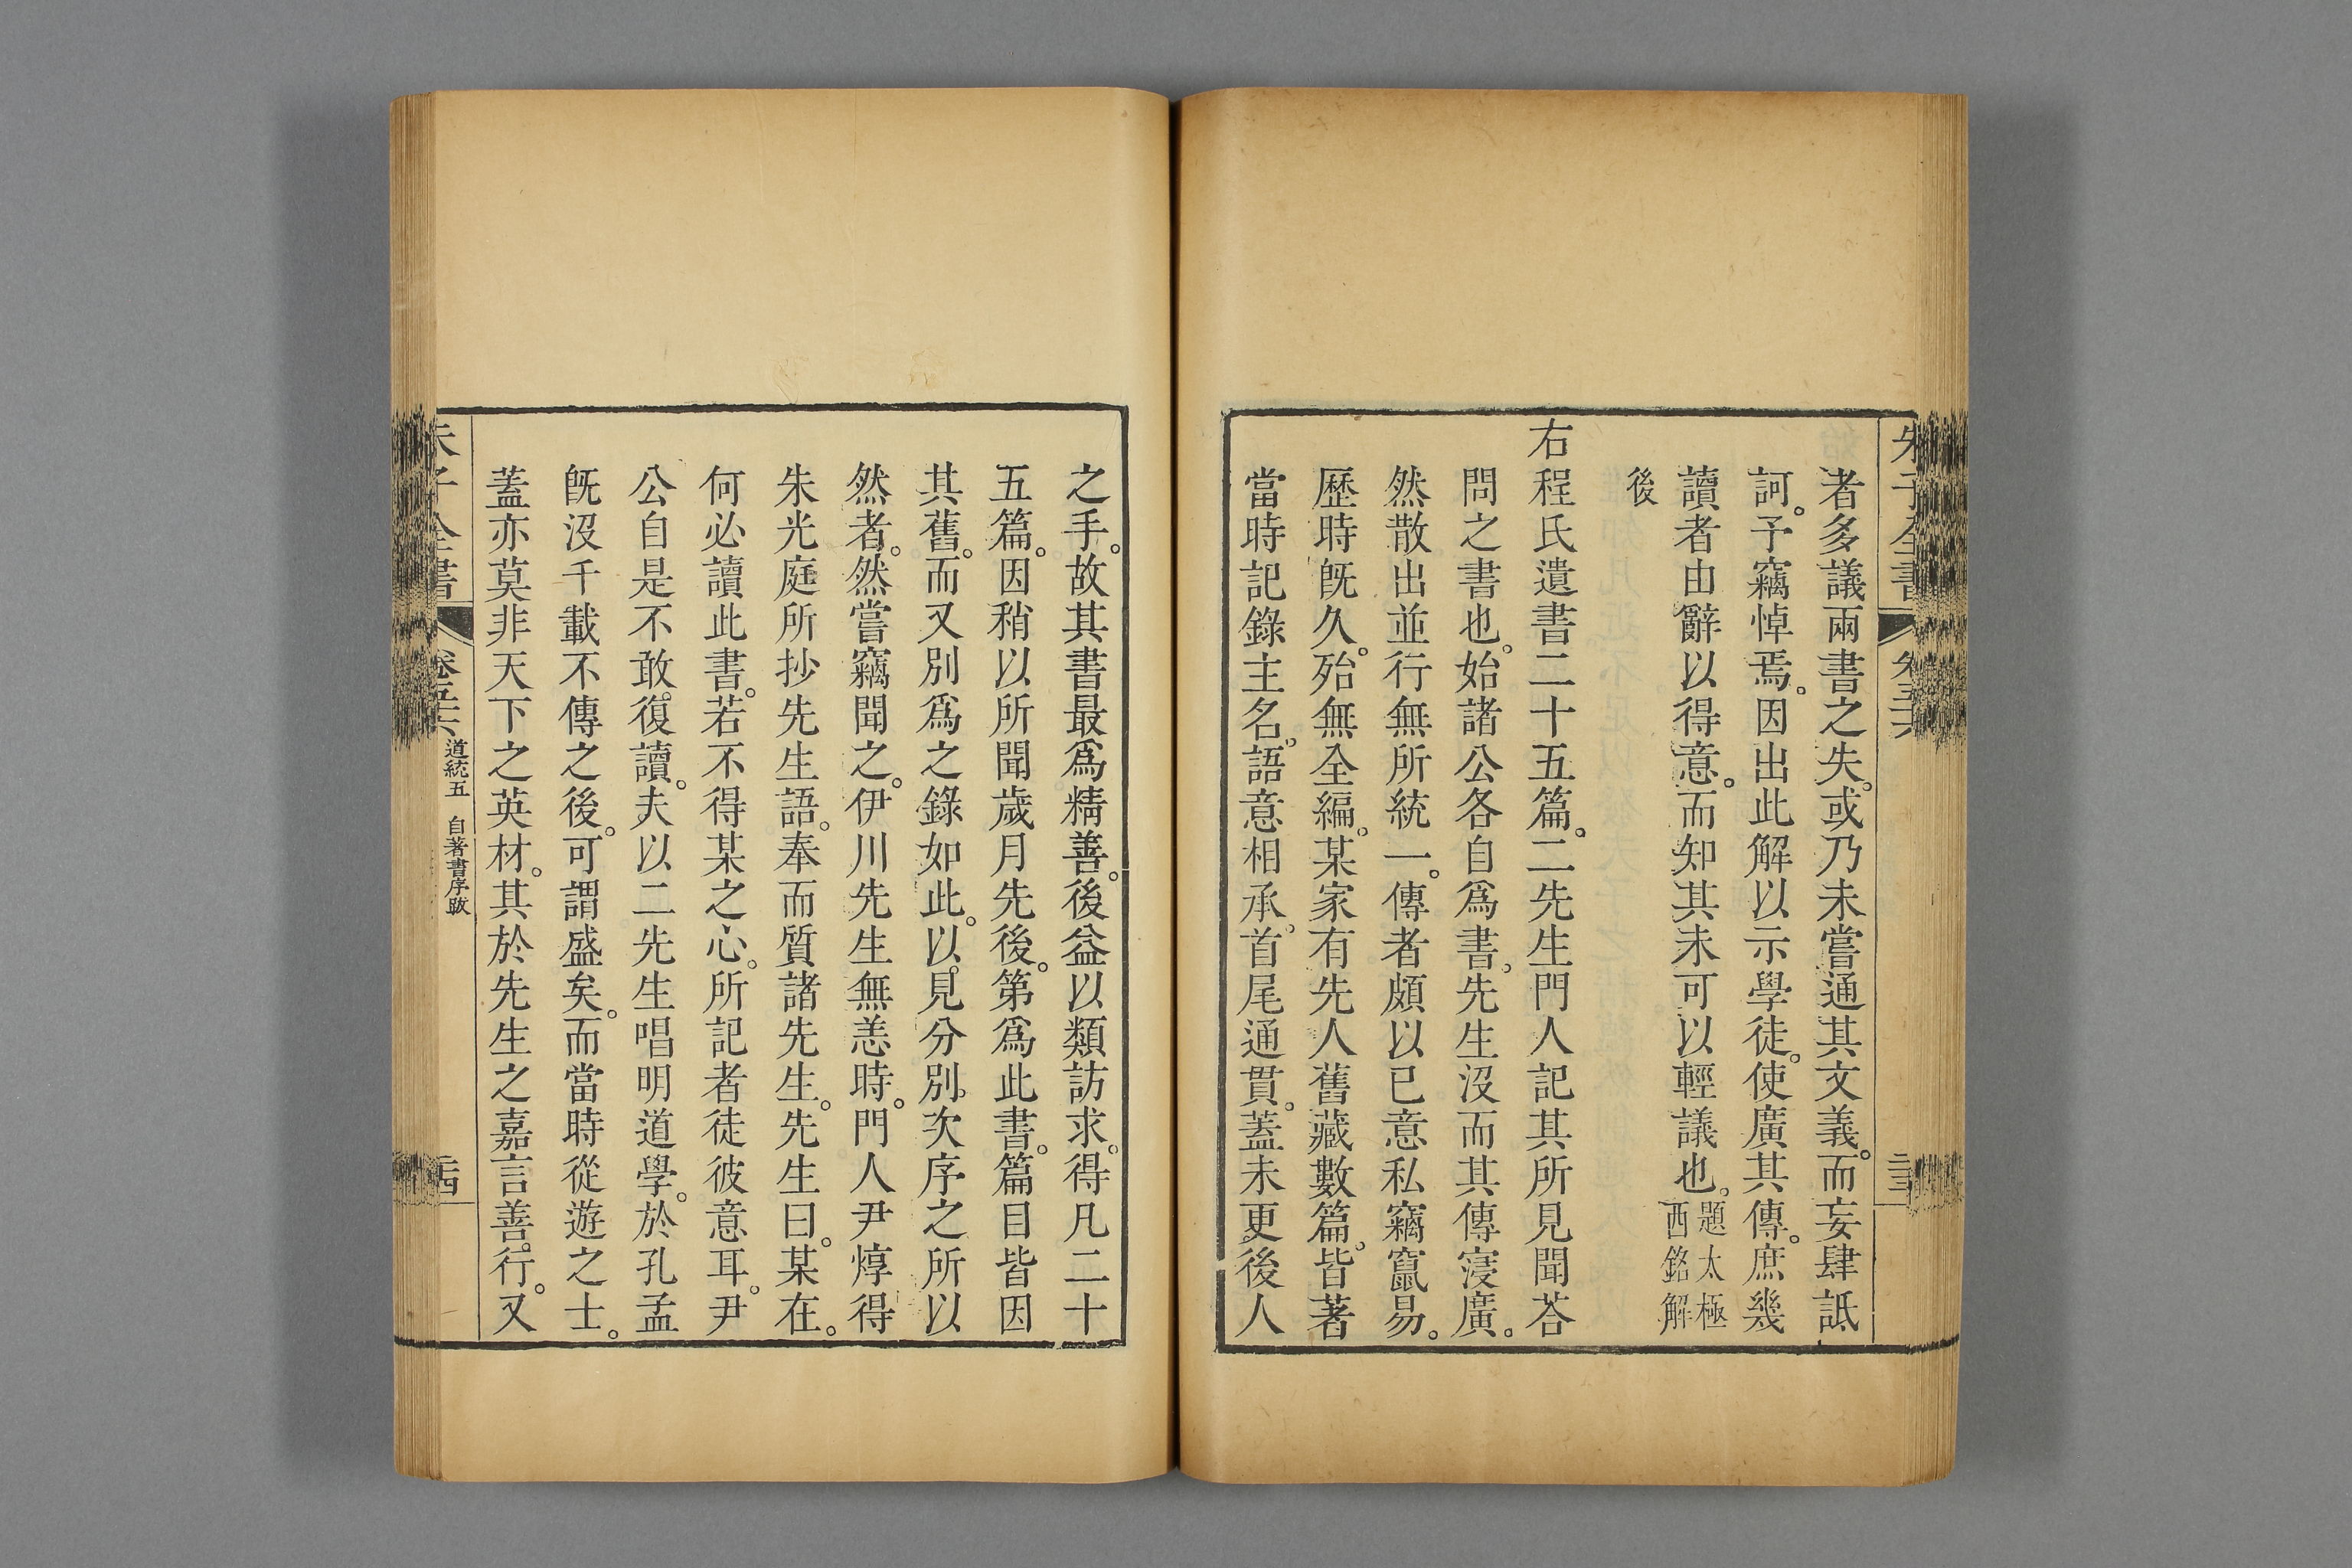 朱子全書 卷五十六 二十三
者多議兩書之失。或乃未嘗通其文義。而妄肆詆
訶。予竊悼焉。因出此解以示學徒。使廣其傳。庶幾
讀者由辭以得意。而知其未可以輕議也。題太極西銘解
後
右程氏遺書二十五篇。二先生門人記其所見聞荅
問之書也。始諸公各自爲書。先生沒而其傳寖廣。
然散出並行無所統一。傳者頗以已意私竊竄易。
歷時旣久。殆無全編。某家有先人舊藏數篇。皆著
當時記錄主名。語意相承。首尾通貫。蓋未更後人
之手。故其書最爲精善。後益以類訪求。得凡二十
五篇。因稍以所聞歲月先後。第爲此書。篇目皆因
其舊。而又別爲之錄如此。以見分別次序之所以
然者。然嘗竊聞之。伊川先生無恙時。門人尹焞得
朱光庭所抄先生語。奉而質諸先生。先生曰。某在。
何必讀此書。若不得某之心。所記者徒彼意耳。尹
公自是不敢復讀。夫以二先生唱明道學。於孔孟
旣沒千載不傳之後。可謂盛矣。而當時從遊之士。
蓋亦莫非天下之英材。其於先生之嘉言善行。又
朱子全書 卷五十六 道統五 自著書序跋 二十四